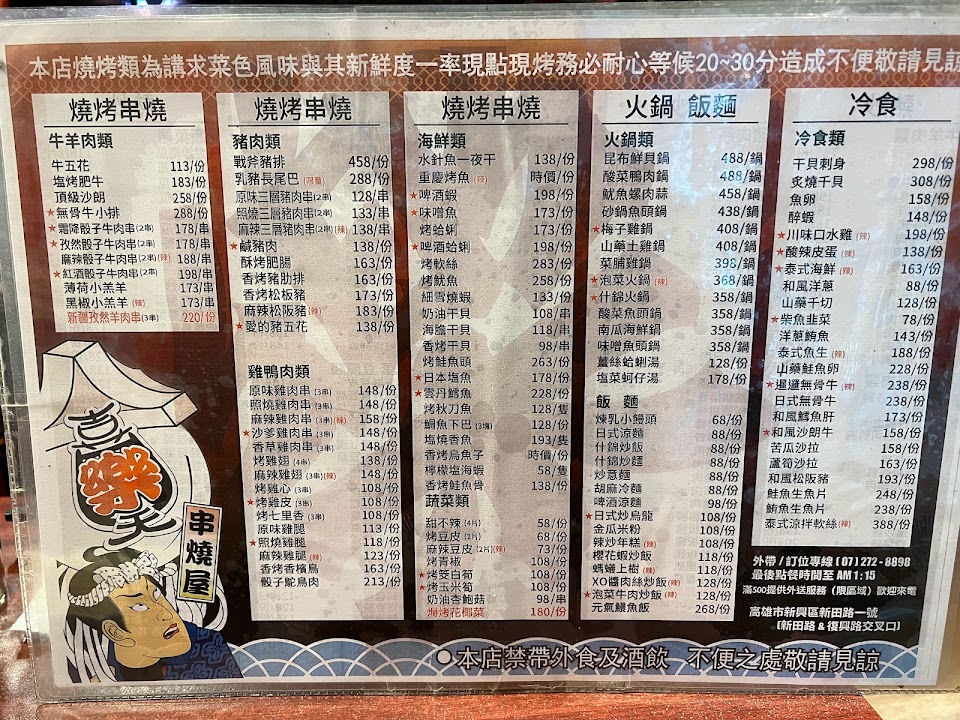 本店燒烤類為講求菜色風味與其新鮮度一率現點現烤務必耐心等候20~30分造成不便敬請見諒
燒烤串燒
牛羊肉類
牛五花 113/份
塩烤肥牛 183/份
頂級沙朗 258/份
★無骨牛小排 288/份
★霜降骰子牛肉串(2串) 178/串
★孜然骰子牛肉串(2串) 178/串
麻辣骰子牛肉串(2串)(辣) 188/串
★紅酒骰子牛肉串(2串) 198/串
薄荷小羔羊 173/串
黑椒小羔羊(辣) 173/串
新疆孜然羊肉串(3串) 220/份
喜樂天
串燒屋
燒烤串燒
豬肉類
戰斧豬排 458/份
乳豬長尾巴(限量) 288/份
原味三層豬肉串(2串) 128/串
照燒三層豬肉串(2串) 133/串
麻辣三層豬肉串(2串)(辣) 138/串
★鹹豬肉 138/份
酥烤肥腸 163/份
香烤豬肋排 163/份
香烤松板豬 173/份
麻辣松阪豬(辣) 183/份
★愛的豬五花 138/份
雞鴨肉類
原味雞肉串(3串) 148/份
照燒雞肉串(3串) 148/份
麻辣雞肉串(3串)(辣) 158/份
★沙爹雞肉串(3串) 148/份
香草雞肉串(3串) 148/份
烤雞翅(4串) 138/份
麻辣雞翅(3串)(辣) 148/份
烤雞心(3串) 108/份
★烤雞屁(3串) 108/份
烤七里香(3串) 108/份
原味雞腿 113/份
★照燒雞腿 118/份
麻辣雞腿(辣) 123/份
香烤香檳鳥 163/份
骰子鴕鳥肉 213/份
燒烤串燒
海鮮類
水針魚一夜干 138/份
重慶烤魚(辣) 時價/份
★啤酒蝦 198/份
★味噌魚 173/份
烤蛤蜊 173/份
★啤酒蛤蜊 198/份
烤軟絲 283/份
烤魷魚 258/份
細雪燒蝦 133/份
奶油干貝 108/串
海膽干貝 118/串
香烤干貝 98/串
烤鮭魚頭 263/份
★日本塩魚 178/份
★雲丹鱈魚 228/份
烤秋刀魚 128/隻
鯛魚下巴(3塊) 128/份
塩燒香魚 193/隻
香烤烏魚子 時價/份
檸檬塩海蝦 58/隻
香烤鮭魚骨 138/份
蔬菜類
甜不辣(4片) 58/份
烤豆皮(2片) 68/份
麻辣豆皮(2片)(辣) 73/份
烤青椒 108/份
★烤茭白筍 108/份
★烤玉米筍 108/份
奶油杏鮑菇 98/串
焗烤花椰菜 180/份
火鍋 飯麵
火鍋類
昆布鮮貝鍋 488/鍋
酸菜鴨肉鍋 488/鍋
魷魚螺肉蒜 458/鍋
砂鍋魚頭鍋 438/鍋
★梅子雞鍋 408/鍋
山藥土雞鍋 408/鍋
菜脯雞鍋 398/鍋
★泡菜火鍋(辣) 368/鍋
★什錦火鍋 358/鍋
酸菜魚頭鍋 358/鍋
南瓜海鮮鍋 358/鍋
味噌魚頭鍋 358/鍋
薑絲蛤蜊湯 128/份
塩菜蚵仔湯 178/份
飯 麵
煉乳小饅頭 68/份
日式涼麵 88/份
什錦炒飯 88/份
什錦炒麵 88/份
炒意麵 88/份
胡麻冷麵 88/份
啤酒涼麵 98/份
★日式炒烏龍 108/份
金瓜米粉 108/份
辣炒年糕(辣) 108/份
櫻花蝦炒飯 118/份
螞蟻上樹(辣) 118/份
XO醬肉絲炒飯(辣) 128/份
★泡菜牛肉炒飯(辣) 128/份
元氣鰻魚飯 268/份
冷食
冷食類
干貝刺身 298/份
炙燒干貝 308/份
魚卵 158/份
醉蝦 148/份
★川味口水雞(辣) 198/份
★酸辣皮蛋(辣) 138/份
★泰式海鮮(辣) 163/份
和風洋蔥 88/份
山藥千切 128/份
★柴魚韭菜 78/份
洋蔥鮪魚 143/份
泰式魚生(辣) 188/份
山藥鮭魚卵 228/份
★邋遢無骨牛(辣) 238/份
日式無骨牛 238/份
和風鱈魚肝 173/份
★和風沙朗牛 158/份
苦瓜沙拉 158/份
蘆筍沙拉 163/份
和風松阪豬 193/份
鮭魚生魚片 248/份
鮪魚生魚片 238/份
泰式涼拌軟絲(辣) 388/份
外帶/訂位專線(07)272-8898
最後點餐時間至AM1:15
滿500提供外送服務(限區域)歡迎來電
高雄市新興區新田路一號
(新田路&復興路交叉口)
本店禁帶外食及酒飲 不便之處敬請見諒